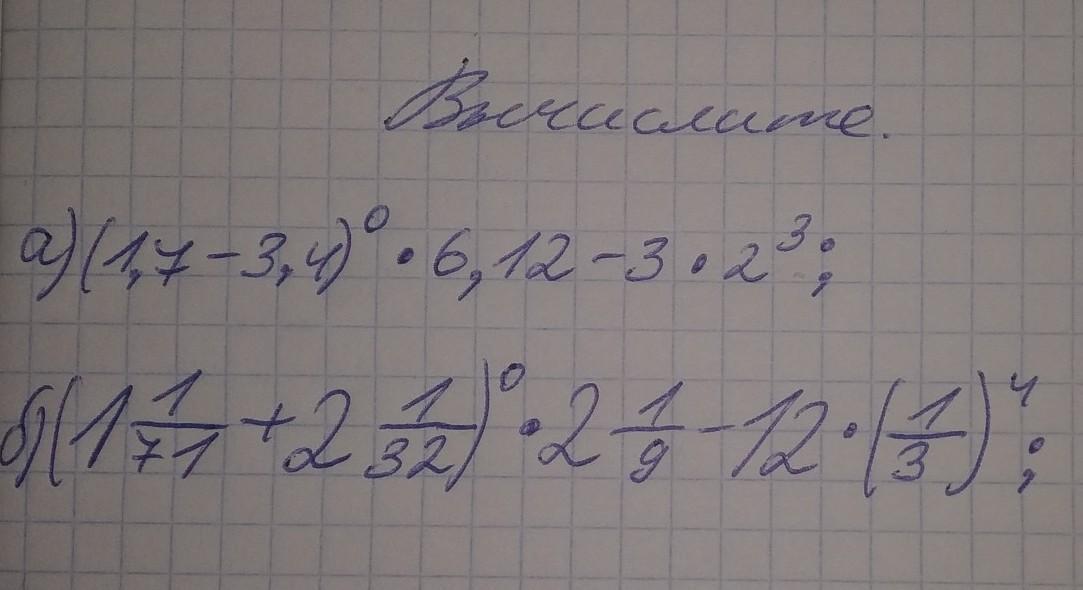 Вычислите.
а) (1,7 - 3,4)⁰ · 6,12 - 3 · 2³;
б) (1 1/71 + 2 1/32)⁰ · 2 1/9 - 12 · (1/3)⁴;